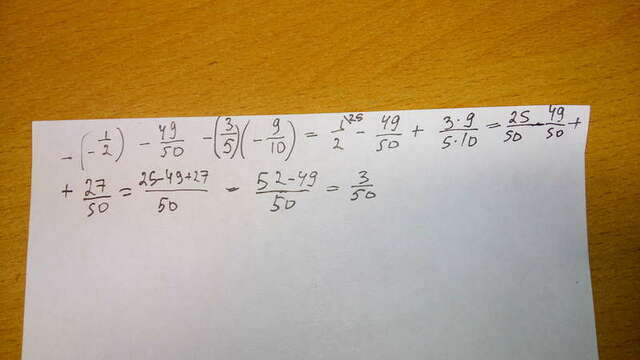 -(-1/2) - 49/50 - (3/5)(-9/10) = 1\25/2 - 49/50 + 3·9/5·10 = 25/50 - 49/50 +
+ 27/50 = 25-49+27/50 - 52-49/50 = 3/50